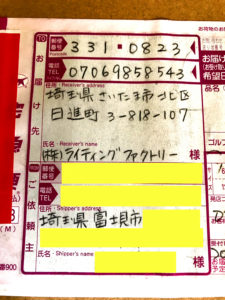 郵便番号 331-0823
電話 TEL 07069858543
お届け先
住所 Receiver's address
埼玉県さいたま市北区
日進町 3-818-107
氏名 Receiver's name
(株)ライティングファクトリー 様
郵便番号
電話 TEL
ご依頼主
住所 Shipper's address
埼玉県富士見市
氏名 Shipper's name
様
お届け
希望日
ゴルフ
(M)
番900